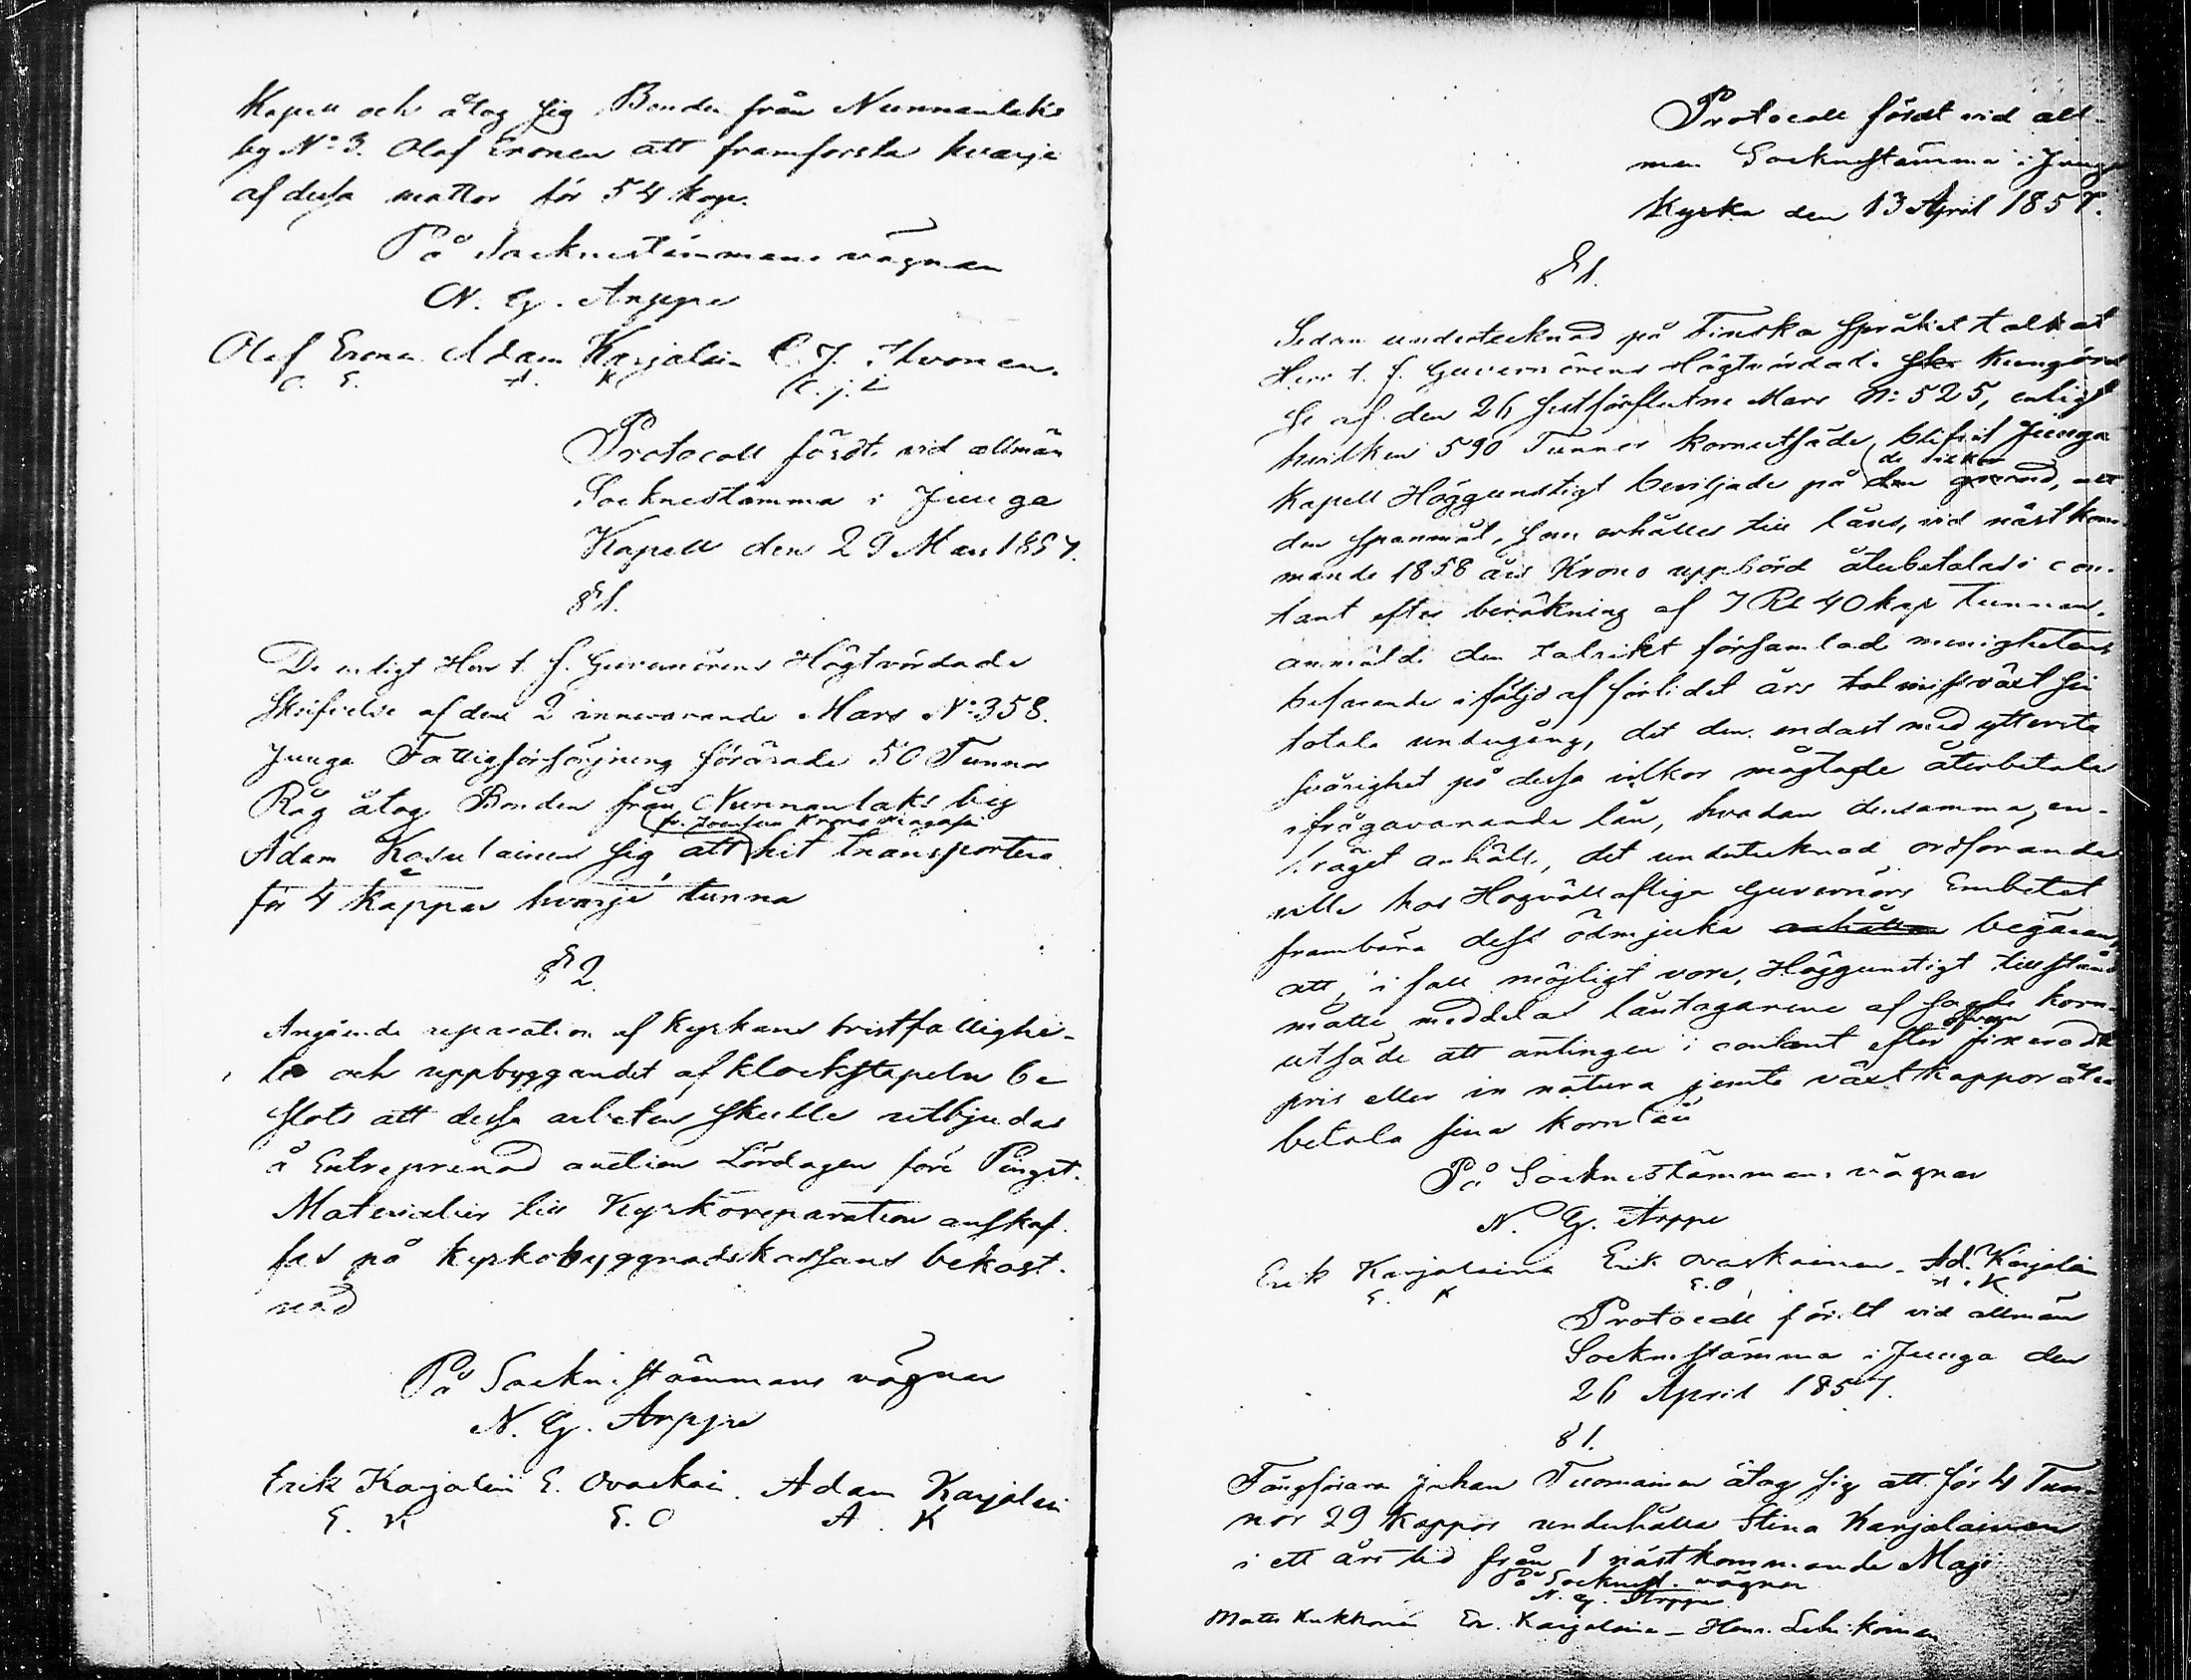 Kapell och åtog sig Bonden från Nunnanlaks
by No 3. Olof Eronen att framforsla hvarje
af dessa mattor för 54 kop.
På Socknestämmans vägnar
N. G. Arppe
Olof Eronen Adam Karjalain C. J. Ihvonen.
O. E. A. K C. J. I
Protocoll fördt vid allmän
Socknestämma i Juuga
Kapell den 29 Mars 1857.
§ 1.
De enligt Herr t. f. Guvernörens Högtvördade
Skrifvelse af den 2 innevarande Mars No 358.
Juuga Fattigförsörjning förärade 50 Tunnor
Råg åtog Bonden från Nunnanlaks by
fr. Joensuu Krono Magasin
Adam Kosulainen sig att hit transportera
för 4 kappar hvarje tunna
§ 2
Angående reparation af Kyrkans bristfällighe-
ter och uppbyggandet af klockstapeln be
slöts att dessa arbeten skulle utbjudas
å Entreprenad auction Lördagen före Pingst.
Materialier till Kyrkoreparation anskaf-
fas på kyrkobyggnadskassans bekost-
nad
På Sockne stämmans vägnar
N. G. Arppe
Erik Karjalain E. Ovaskai. Adam Karjalai
E. K E. O A. K
Protocoll fördt vid all-
män Socknestämma i Juuga
Kyrka den 13 April 1857.
§ 1.
Sedan undertecknad på Finska språket tolkat
Herr t. f. Guvernörens Högtvördade Kungörel
se af den 26 sistförflutne Mars No 525, enligt
hvilken 590 Tunnor kornutsäde, blifvit Juuga
de vilkor
Kapell Höggunstigt beviljade på den grund, att
den spanmål, som erhålles till låns, vid nästkom-
mande 1858 års Krono uppbörd återbetalas i con-
tant efter beräkning af 7 Rb 40 kop tunnan,
anmälde den talrikt församlad menigheten
befarande i följd af förlidet års missväxt sin
totala undergång, det den endast med yttersta
svårighet på dessa vilkor mägtade återbetala
ifrågavarande lån, hvadan densamma, en-
träget anhöll, det undertecknad ordförande
ville hos Högvällofliga Guvernörs Embetet
frambära dess ödmjuka anhållan begäran,
att, i fall möjligt vore, Höggunstigt tillstånd
måtte meddelas låntagarene af sagde korn-
ofvan
utsäde att antingen i contant efter fixerade
pris eller in natura jemte växtkappor åter
betala sina kornlån
På Socknestämmans vägnar
N. G. Arppe
Erik Karjalaine Erik Ovaskainen. Ad. Karjalain
E. K E. O A. K
Protocoll fördt vid allmän
Socknestämma i Juuga den
26 April 1857.
§ 1.
Fångförarn Johan Tuomainen åtog sig att för 4 Tun-
nor 29 kappor underhålla Stina Karjalainen
i ett års tid från 1 nästkommande Maji
På Socknest. vägnar
N. G. Arppe
Matts Kukkonen Er. Karjalaine - Henr. Lehikoinen